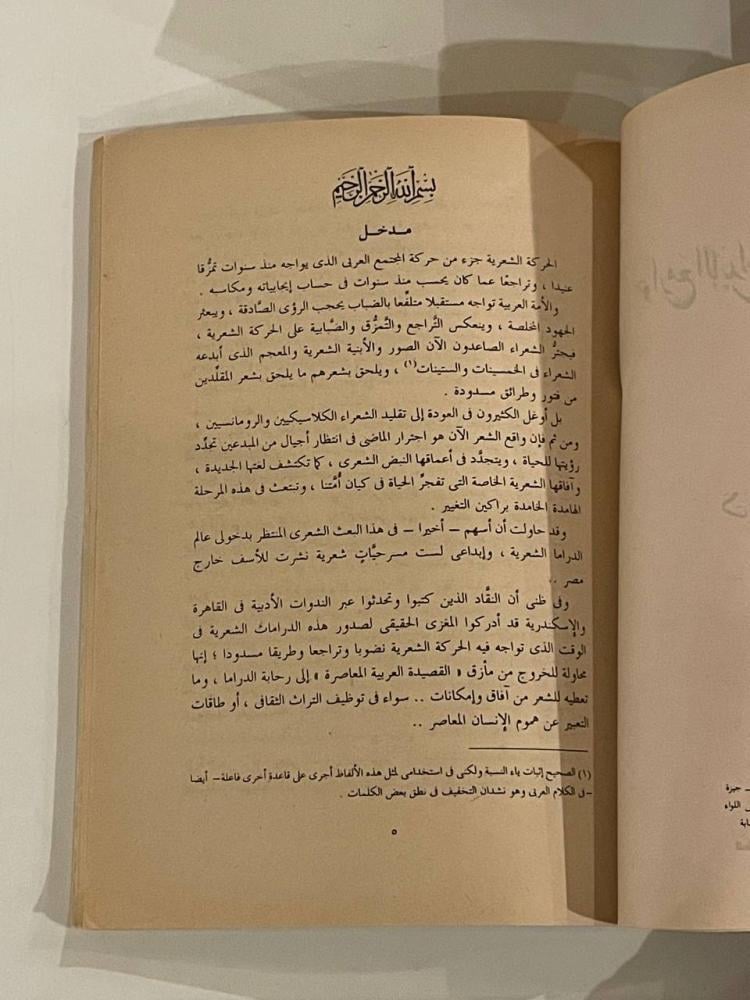 بسم الله الرحمن الرحيم
مدخل
الحركة الشعرية جزء من حركة المجتمع العربى الذى يواجه منذ سنوات تمزُّقا
عنيدا ، وتراجعًا عما كان يحسب منذ سنوات فى حساب إيجابياته ومكاسبه .
والأمة العربية تواجه مستقبلا متلفِّعا بالضباب يحجب الرؤى الصَّادقة ، ويبعثر
الجهود المخلصة ، وينعكس التَّراجع والتَّمزُّق والضَّبابية على الحركة الشعرية ،
فيجترُّ الشعراء الصاعدون الآن الصور والأبنية الشعرية والمعجم الذى أبدعه
الشعراء فى الخمسينات والستينات(١) ، ويلحق بشعرهم ما يلحق بشعر المقلِّدين
من فتور وطرائق مسدودة .
بل أوغل الكثيرون فى العودة إلى تقليد الشعراء الكلاسيكيين والرومانسيين ،
ومن ثم فإن واقع الشعر الآن هو اجترار الماضى فى انتظار أجيال من المبدعين تحدِّد
رؤيتها للحياة ، ويتجدَّد فى أعماقها النبض الشعرى ، كما تكتشف لغتها الجديدة ،
وآفاقها الشعرية الخاصة التى تفجرِّ الحياة فى كيان أُمَّتنا ، وتبتعث فى هذه المرحلة
الهامدة الخامدة براكين التغيير .
وقد حاولت أن أسهم – أخيرا – فى هذا البعث الشعرى المنتظر بدخولى عالم
الدراما الشعرية ، وإبداعى لست مسرحيَّاتٍ شعرية نشرت للأسف خارج
مصر ..
وفى ظنى أن النقَّاد الذين كتبوا وتحدثوا عبر الندوات الأدبية فى القاهرة
والإسكندرية قد أدركوا المغزى الحقيقى لصدور هذه الدرامات الشعرية فى
الوقت الذى تواجه فيه الحركة الشعرية نضوبا وتراجعا وطريقا مسدودا ؛ إنها
محاولة للخروج من مأزق « القصيدة العربية المعاصرة » إلى رحابة الدراما ، وما
تعطيه للشعر من آفاق وإمكانات .. سواء فى توظيف التراث الثقافى ، أو طاقات
التعبير عن هموم الإنسان المعاصر ..
(١) الصحيح إثبات ياء النسبة ولكنى فى استخدامى لمثل هذه الألفاظ أجرى على قاعدة أخرى فاعلة – أيضا
– فى الكلام العربى وهو نشدان التخفيف فى نطق بعض الكلمات .
٥
– جيزة
اللواء